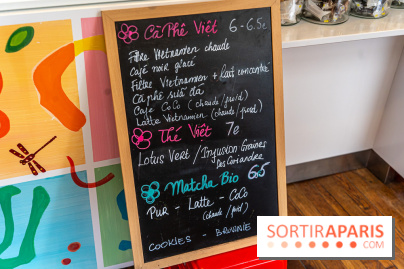 Cà Phê Việt 6 - 6.5€
Filtre Vietnamien chaude
Café noir glacé
Filtre Vietnamien + lait concentré
Cà phê sữa đá
Cafe CoCo (chaude / froid)
Latte Vietnamien (chaude / froid)
Thé Việt 7€
Lotus Vert / Infusion Graines
Des Coriandre
Matcha Bio 6€5
Pur - Latte - CoCo
(chaude / froid)
COOKIES - BROWNIE
SORTIRAPARIS
.COM